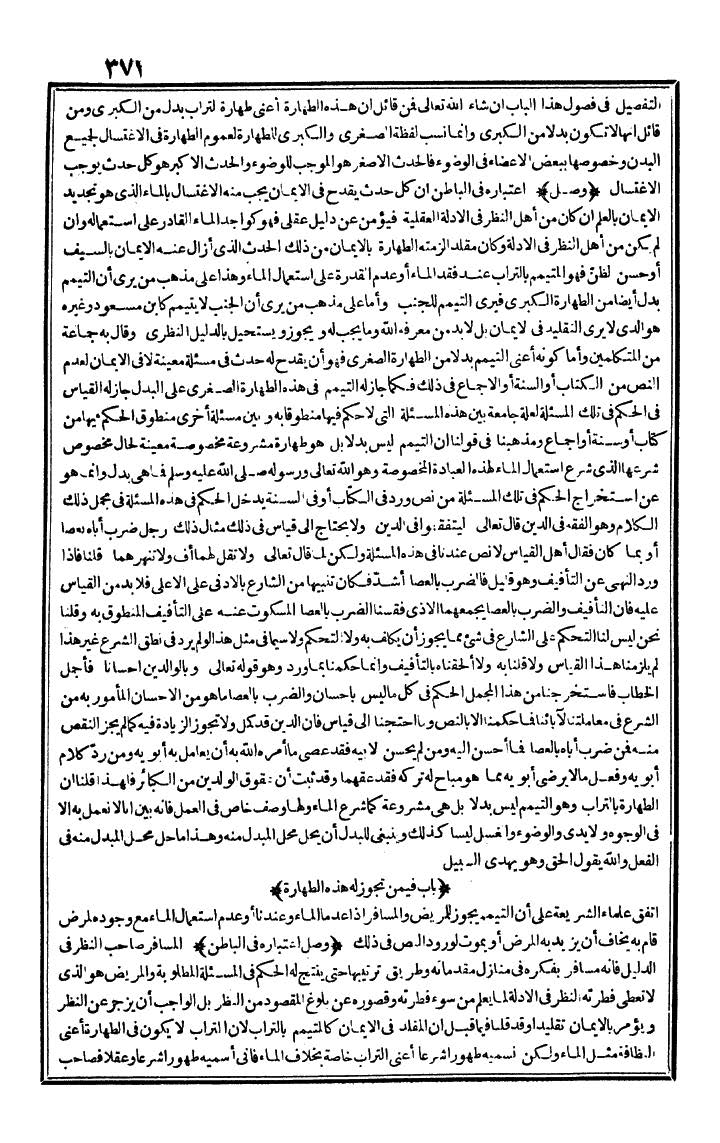 ٣٧١
التفصيل فى فصول هذا الباب ان شاء الله تعالى فمن قائل ان هذه الطهارة أعنى طهارة لتراب بدل من الكبرى ومن
قائل انها لا تكون بدلا من الكبرى وانما نسب لفظة الصغرى والكبرى للطهارة لعموم الطهارة فى الاغتسال لجميع
البدن وخصوصها ببعض الاعضاء فى الوضوء فالحدث الاصغر هو الموجب للوضوء والحدث الاكبر هو كل حدث يوجب
الاغتسال ﴿وصل﴾ اعتباره فى الباطن ان كل حدث يقدح فى الايمان يجب منه الاغتسال بالماء الذى هو تجديد
الايمان بالعلم ان كان من أهل النظر فى الادلة العقلية فيؤمن عن دليل عقلى فهو كواجد الماء القادر على استعماله وان
لم يكن من أهل النظر فى الادلة وكان مقلدا لزمته الطهارة بالايمان من ذلك الحدث الذى أزال عنه الايمان بالسيف
أو حسن لظنّ فهو المتيمم بالتراب عند فقد الماء أو عدم القدرة على استعمال الماء وهذا على مذهب من يرى أن التيمم
بدل أيضا من الطهارة الكبرى فيرى التيمم للجنب وأما على مذهب من يرى أن الجنب لا يتيمم كابن مسعود وغيره
هو الذى لا يرى التقليد فى لايمان بل لابد من معرفة الله وما يجب له ويجوز ويستحيل بالدليل النظرى وقال به جماعة
من المتكلمين وأما كونه أعنى التيمم بدلا من الطهارة الصغرى فهو أن يقدح له حدث فى مسئلة معينة لا فى الايمان لعدم
النص من الكتاب أو السنة أو الاجماع فى ذلك فكما جاز له التيمم فى هذه الطهارة الصغرى على البدل جاز له القياس
فى الحكم فى تلك المسئلة لعلة جامعة بين هذه المسئلة التى لا حكم فيها منطوقا به وبين مسئلة أخرى منطوق الحكم فيها من
كتاب أو سنة أو اجماع ومذهبنا فى قولنا ان التيمم ليس بدلا بل هو طهارة مشروعة مخصوصة معينة لحال مخصوص
شرعها الذى شرع استعمال الماء لهذه العبادة المخصوصة وهو الله تعالى ورسوله صلى الله عليه وسلم فما هى بدل وانما هو
عن استخراج الحكم فى تلك المسئلة من نص ورد فى الكتاب أو فى السنة يدخل الحكم فى هذه المسئلة فى مجمل ذلك
الكلام وهو الفقه فى الدين قال تعالى ليتفقهوا فى الدين ولا يحتاج الى قياس فى ذلك مثال ذلك رجل ضرب أباه بعصا
أو بما كان فقال أهل القياس لا نص عندنا فى هذه المسئلة ولكن لما قال تعالى ولا تقل لهما أف ولا تنهرهما قلنا فاذا
ورد النهى عن التأفيف وهو قليل فالضرب بالعصا أشدّ فكان تنبيها من الشارع بالادنى على الاعلى فلابد من القياس
عليه فان التأفيف والضرب بالعصا يجمعهما الاذى فقسنا الضرب بالعصا المسكوت عنه على التأفيف المنطوق به وقلنا
نحن ليس لنا التحكم على الشارع فى شئ مما يجوز أن يكلف به ولا التحكم ولاسيما فى مثل هذا لو لم يرد فى نطق الشرع غير هذا
لم يلزمنا هذا القياس ولا قلنا به ولا ألحقناه بالتأفيف وانما حكمنا بما ورد وهو قوله تعالى وبالوالدين احسانا فأجمل
الخطاب فاستخرجنا من هذا المجمل الحكم فى كل ما ليس باحسان والضرب بالعصا ما هو من الاحسان المأمور به من
الشرع فى معاملتنا لآبائنا فما حكمنا الا بالنص وما احتجنا الى قياس فان الدين قد كمل ولا تجوز الزيادة فيه كما لم يجز النقص
منه فمن ضرب أباه بالعصا فما أحسن اليه ومن لم يحسن لابيه فقد عصى ما أمره الله به أن يعامل به أبويه ومن ردّ كلام
أبويه وفعل ما لا يرضى أبويه مما هو مباح له تركه فقد عقهما وقد ثبت أن عقوق الوالدين من الكبائر فلهذا قلنا ان
الطهارة بالتراب وهو التيمم ليس بدلا بل هى مشروعة كما شرع الماء ولها وصف خاص فى العمل فانه بين انا لا نعمل به الا
فى الوجوه والايدى والوضوء والغسل ليسا كذلك وينبغى للبدل أن يحل محل المبدل منه وهذا ما حل محل المبدل منه فى
الفعل والله يقول الحق وهو يهدى السبيل
﴿باب فيمن تجوز له هذه الطهارة﴾
اتفق علماء الشريعة على أن التيمم يجوز للمريض والمسافر اذا عدما الماء وعندنا أو عدم استعمال الماء مع وجوده لمرض
قام به يخاف أن يزيد به المرض أو يموت لورود النص فى ذلك ﴿وصل اعتباره فى الباطن﴾ المسافر صاحب النظر فى
الدليل فانه مسافر بفكره فى منازل مقدماته وطريق ترتيبها حتى ينتج له الحكم فى المسئلة المطلوبة والمريض هو الذى
لا تعطى فطرته النظر فى الادلة لما يعلم من سوء فطرته وقصوره عن بلوغ المقصود من النظر بل الواجب أن يزجر عن النظر
ويؤمر بالايمان تقليدا وقد قلنا فيما قبل ان المقلد فى الايمان كالمتيمم بالتراب لان التراب لا يكون فى الطهارة أعنى
النظافة مثل الماء ولكن نسميه طهورا شرعا أعنى التراب خاصة بخلاف الماء فانى أسميه طهورا شرعا وعقلا فصاحب